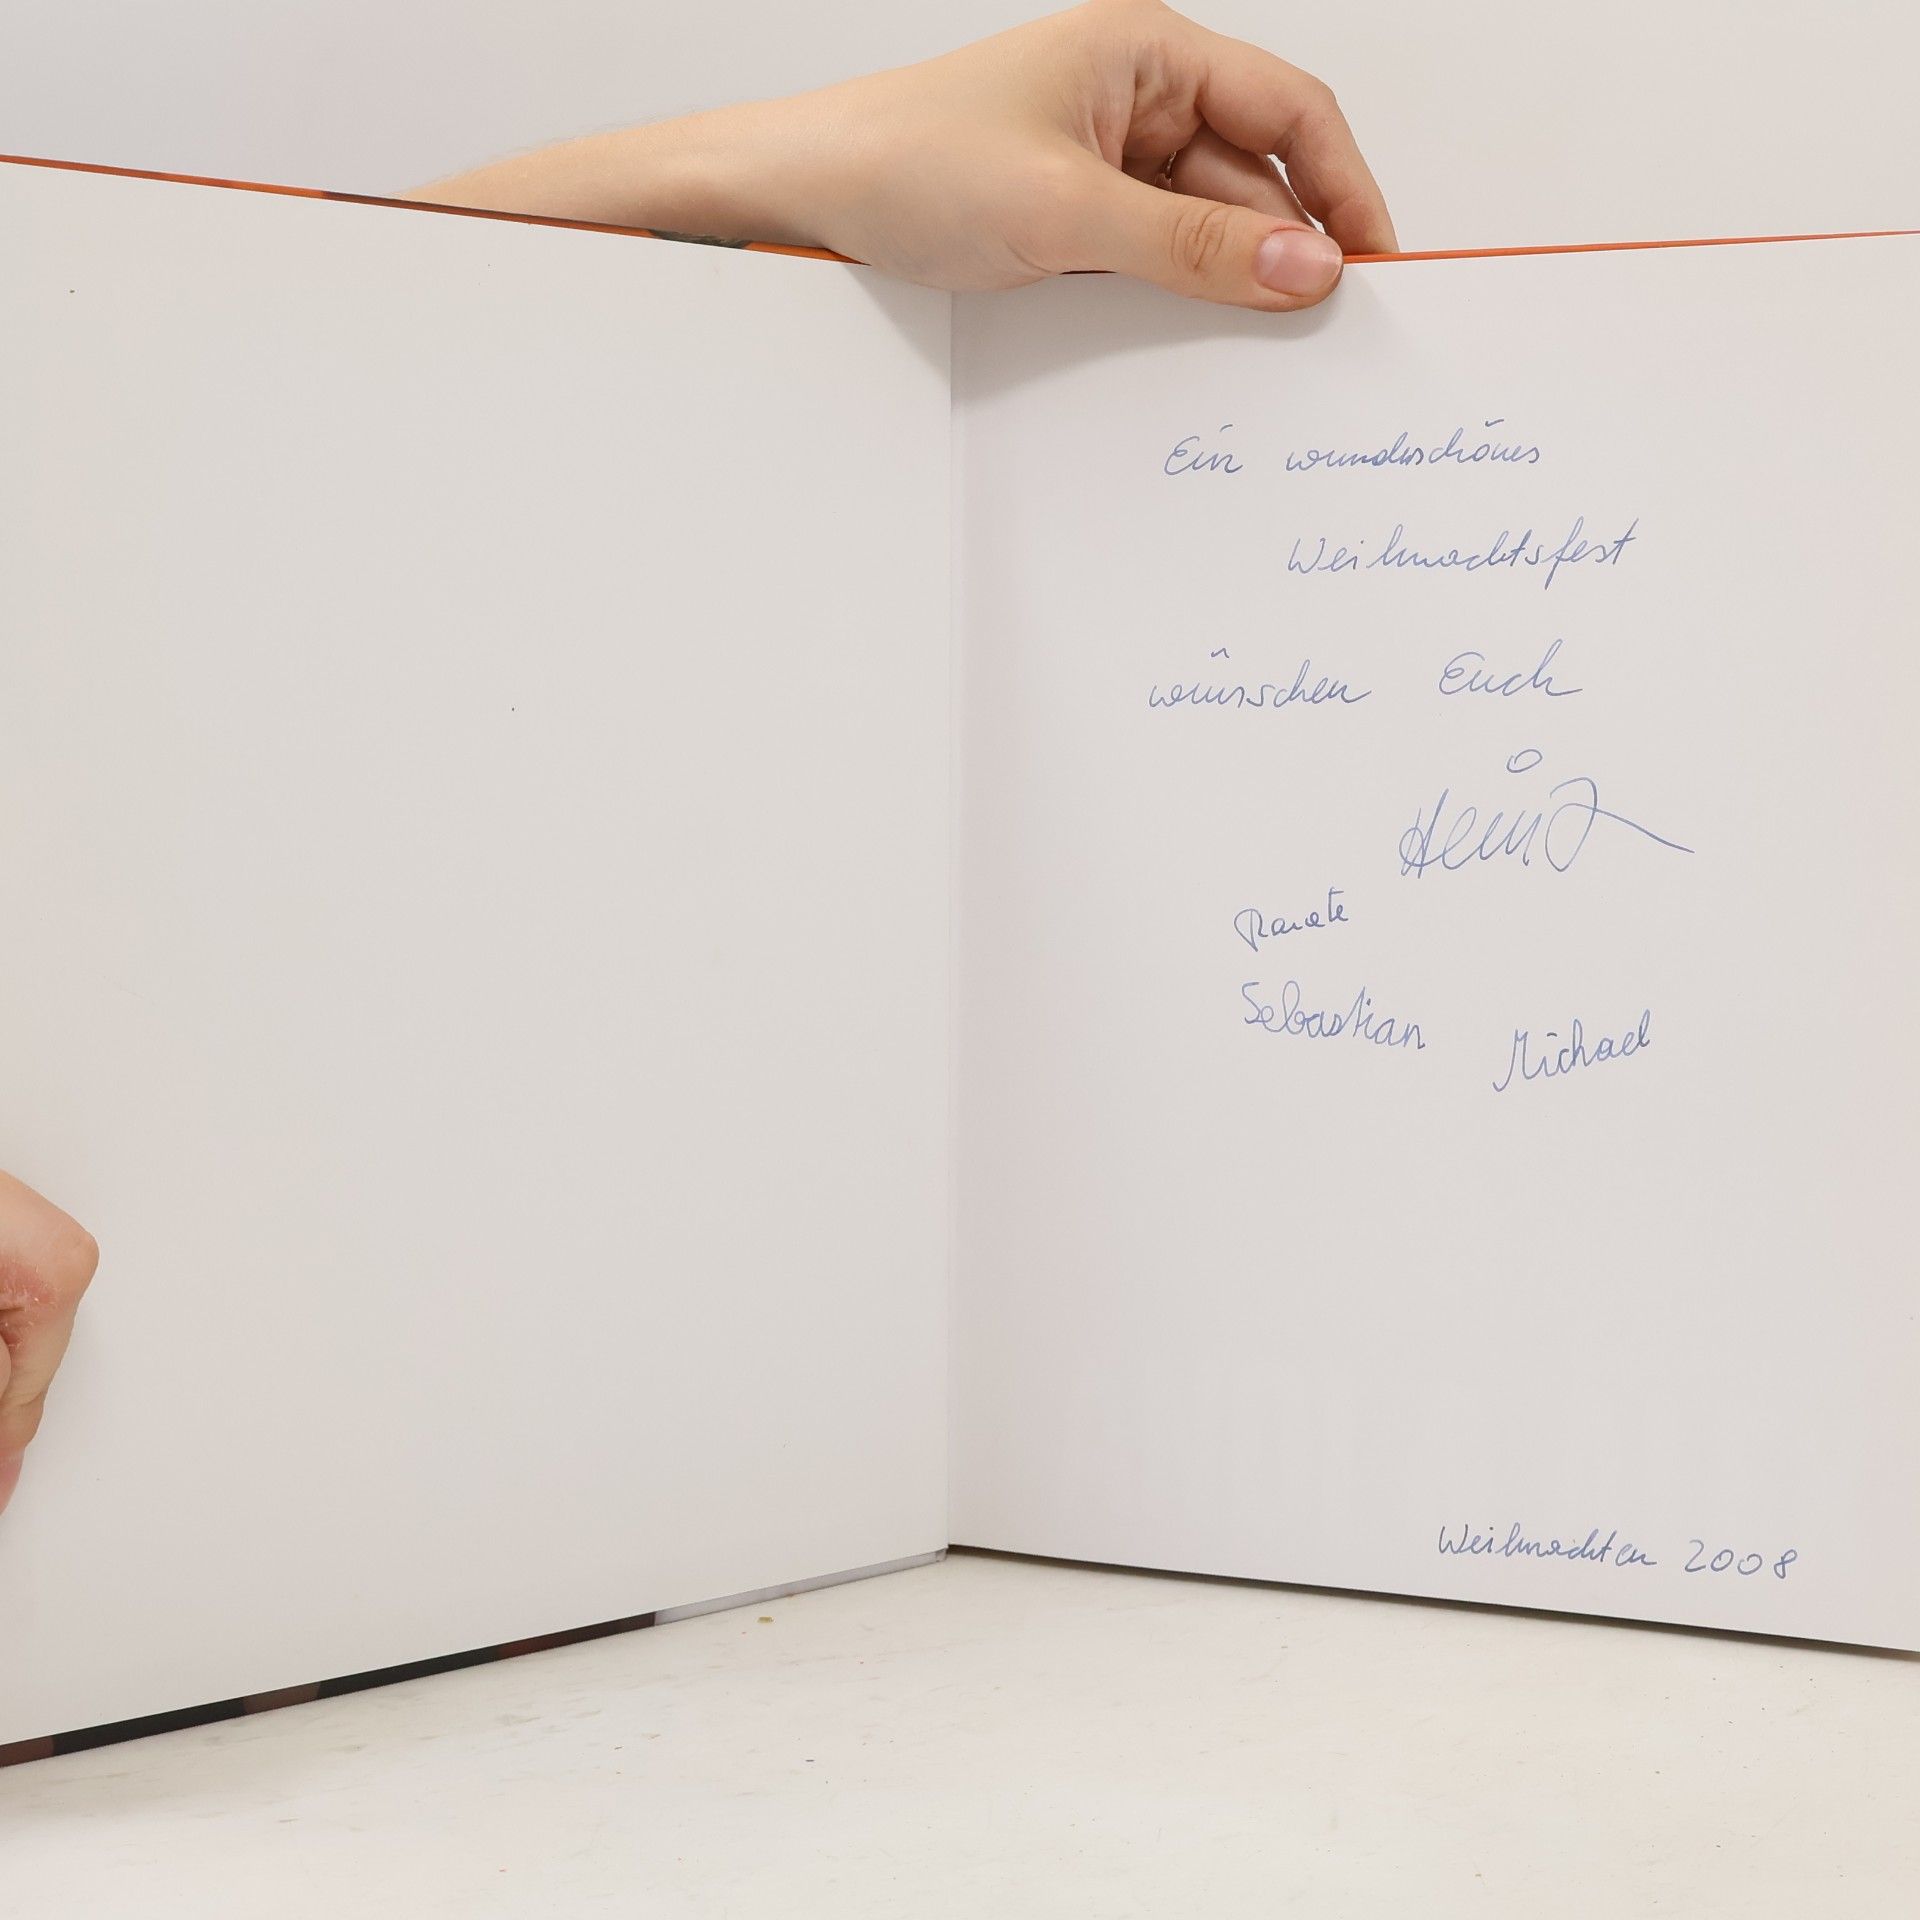 Ein wunderschönes
Weihnachtsfest
wünschen Euch
Heinz
Renate
Sebastian Michael
Weihnachten 2008